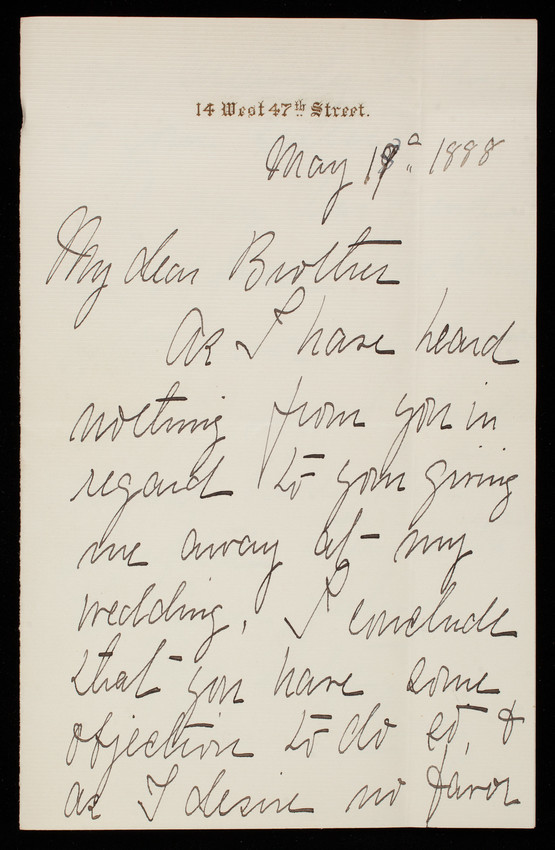 14 West 47th Street.
May 19th 1888
My dear Brother
As I have heard
nothing from you in
regard to your giving
me away at my
wedding, I conclude
that you have some
objection to do so, &
as I desire no favor